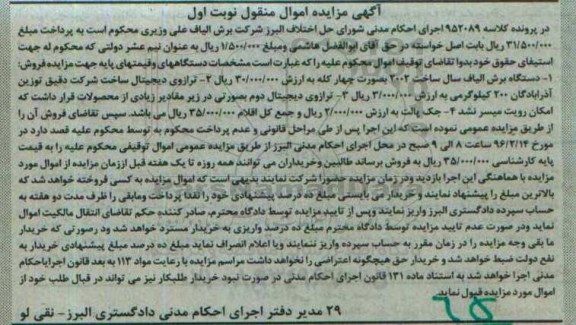 آگهی مزایده اموال منقول نوبت اول
در پرونده کلاسه ۹۵۲۰۸۹ اجرای احکام مدنی شورای حل اختلاف البرز شرکت برش الیاف علی وزیری محکوم است به پرداخت مبلغ
۳۱/۵۰۰/۰۰۰ ریال بابت اصل خواسته در حق آقای ابوالفضل هاشمی ومبلغ ۱/۵۰۰/۰۰۰ ریال به عنوان نیم عشر دولتی که محکوم له جهت
استیفای حقوق خودبدوا تقاضای توقیف اموال محکوم علیه را که عبارت است مشخصات دستگاههای وقیمتهای پایه جهت مزایده فروش:
۱- دستگاه برش الیاف سال ساخت ۲۰۰۲ بصورت چهار کله به ارزش ۳۰/۰۰۰/۰۰۰ ریال ۲- ترازوی دیجیتال ساخت شرکت دقیق توزین
آذرابادگان ۲۰۰ کیلوگرمی به ارزش ۳/۰۰۰/۰۰۰ ریال ۳- ترازوی دیجیتال دوم بصورتی در زیر مقادیر زیادی از محصولات قرار داشت که
امکان رویت میسر نشد ۴- جک پالت به ارزش ۲/۰۰۰/۰۰۰ ریال و جمع کل اقلام ۳۵/۰۰۰/۰۰۰ ریال می باشد. سپس تقاضای فروش آن را
از طریق مزایده عمومی نموده است که این اجرا پس از طی مراحل قانونی و عدم پرداخت محکوم به توسط محکوم علیه قصد دارد در
مورخ ۹۶/۲/۱۴ ساعت ۸ الی ۹ صبح در محل اجرای احکام مدنی البرز از طریق مزایده عمومی اموال توقیفی محکوم علیه را به قیمت
پایه کارشناسی ۳۵/۰۰۰/۰۰۰ ریال به فروش برساند طالبین وخریداران می توانند همه روزه تا یک هفته قبل اززمان مزایده از اموال مورد
مزایده با هماهنگی این اجرا بازدید ودر زمان مزایده حضورا شرکت نمایند بدیهی است که اموال مزایده به کسی فروخته خواهد شد که
بالاترین مبلغ را پیشنهاد نمایند و خریدار می بایستی مبلغ ده درصد پیشنهادی خود را نقدا پرداخت ومابقی را ظرف مدت دو هفته به
حساب سپرده دادگستری البرز واریز نمایند وپس از تایید مزایده توسط دادگاه محترم، صادر کننده حکم تقاضای انتقال مالکیت اموال
نماید ودر صورت عدم تایید مزایده توسط دادگاه محترم مبلغ ده درصد واریزی به خریدار مسترد خواهد شد ود رصورتی که خریدار
ما بقی وجه مزایده را در زمان مقرر به حساب سپرده واریز ننمایند ویا اعلام انصراف نماید مبلغ ده درصد مبلغ پیشنهادی خریدار به
نفع دولت ضبط خواهد شد و خریدار حق هیچگونه اعتراضی را نخواهد داشت مراسم مزایده با رعایت مواد ۱۱۳ به بعد قانون اجرایاحکام
مدنی اجرا خواهد شد به استناد ماده ۱۳۱ قانون اجرای احکام مدنی در صورت نبود خریدار طلبکار نیز می تواند در قبال طلب خود از
اموال مورد مزایده قبول نماید
۲۹ مدیر دفتر اجرای احکام مدنی دادگستری البرز - نقی لو